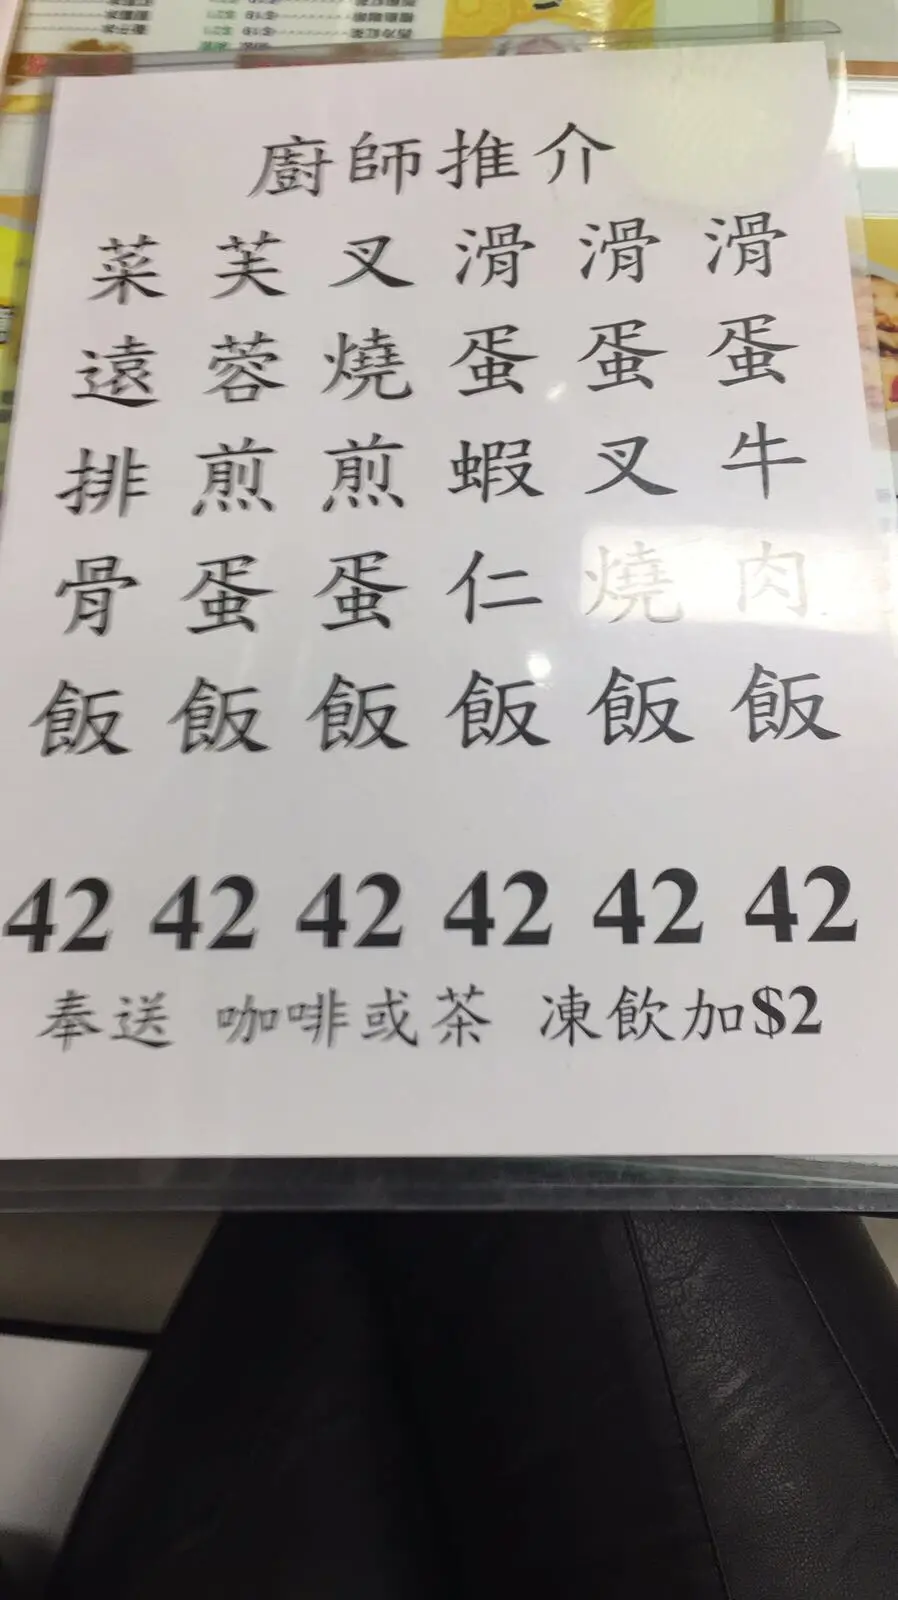 廚師推介
滑蛋牛肉飯 42
滑蛋叉燒飯 42
滑蛋蝦仁飯 42
叉燒煎蛋飯 42
芙蓉煎蛋飯 42
菜遠排骨飯 42
奉送 咖啡或茶 凍飲加$2